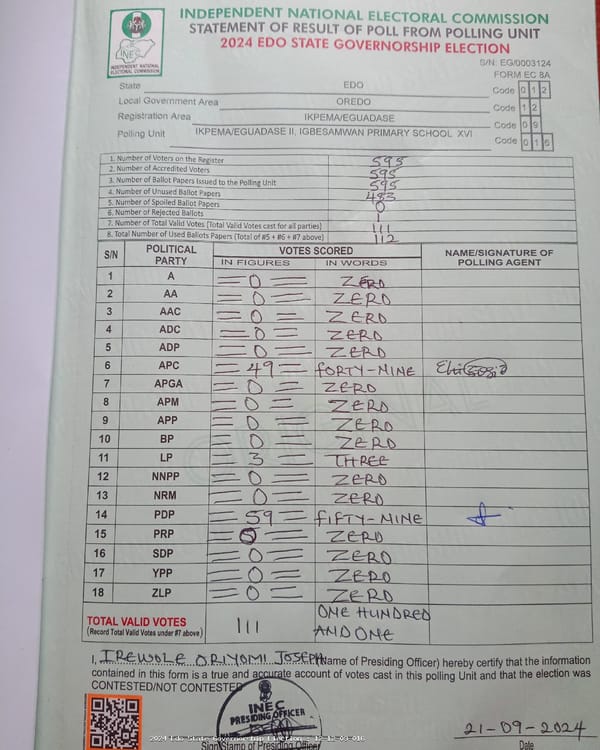 INDEPENDENT NATIONAL ELECTORAL COMMISSION
STATEMENT OF RESULT OF POLL FROM POLLING UNIT
2024 EDO STATE GOVERNORSHIP ELECTION
INEC
INDEPENDENT NATIONAL ELECTORAL COMMISSION
S/N: EG/0003124
FORM EC 8A
State EDO Code 0 1 2
Local Government Area OREDO Code 1 2
Registration Area IKPEMA/EGUADASE Code 0 9
Polling Unit IKPEMA/EGUADASE II, IGBESAMWAN PRIMARY SCHOOL XVI Code 0 1 6
1. Number of Voters on the Register 595
2. Number of Accredited Voters 595
3. Number of Ballot Papers Issued to the Polling Unit 595
4. Number of Unused Ballot Papers 483
5. Number of Spoiled Ballot Papers 0
6. Number of Rejected Ballots 1
7. Number of Total Valid Votes (Total Valid Votes cast for all parties) 111
8. Total Number of Used Ballots Papers (Total of #5 + #6 + #7 above) 112
S/N POLITICAL PARTY VOTES SCORED NAME/SIGNATURE OF POLLING AGENT
IN FIGURES IN WORDS
1 A 0 ZERO
2 AA 0 ZERO
3 AAC 0 ZERO
4 ADC 0 ZERO
5 ADP 0 ZERO
6 APC 49 FORTY-NINE
7 APGA 0 ZERO
8 APM 0 ZERO
9 APP 0 ZERO
10 BP 0 ZERO
11 LP 3 THREE
12 NNPP 0 ZERO
13 NRM 0 ZERO
14 PDP 59 FIFTY-NINE
15 PRP 0 ZERO
16 SDP 0 ZERO
17 YPP 0 ZERO
18 ZLP 0 ZERO
TOTAL VALID VOTES 111 ONE HUNDRED
(Record Total Valid Votes under #7 above) AND ONE
I, IREWOLE ORIYOMI JOSEPH (Name of Presiding Officer) hereby certify that the information
contained in this form is a true and accurate account of votes cast in this polling Unit and that the election was
CONTESTED/NOT CONTESTED
INEC
PRESIDING OFFICER
21-09-2024
2024 Edo State Governorship Election - 12-12-09-016
Sign/Stamp of Presiding Officer Date